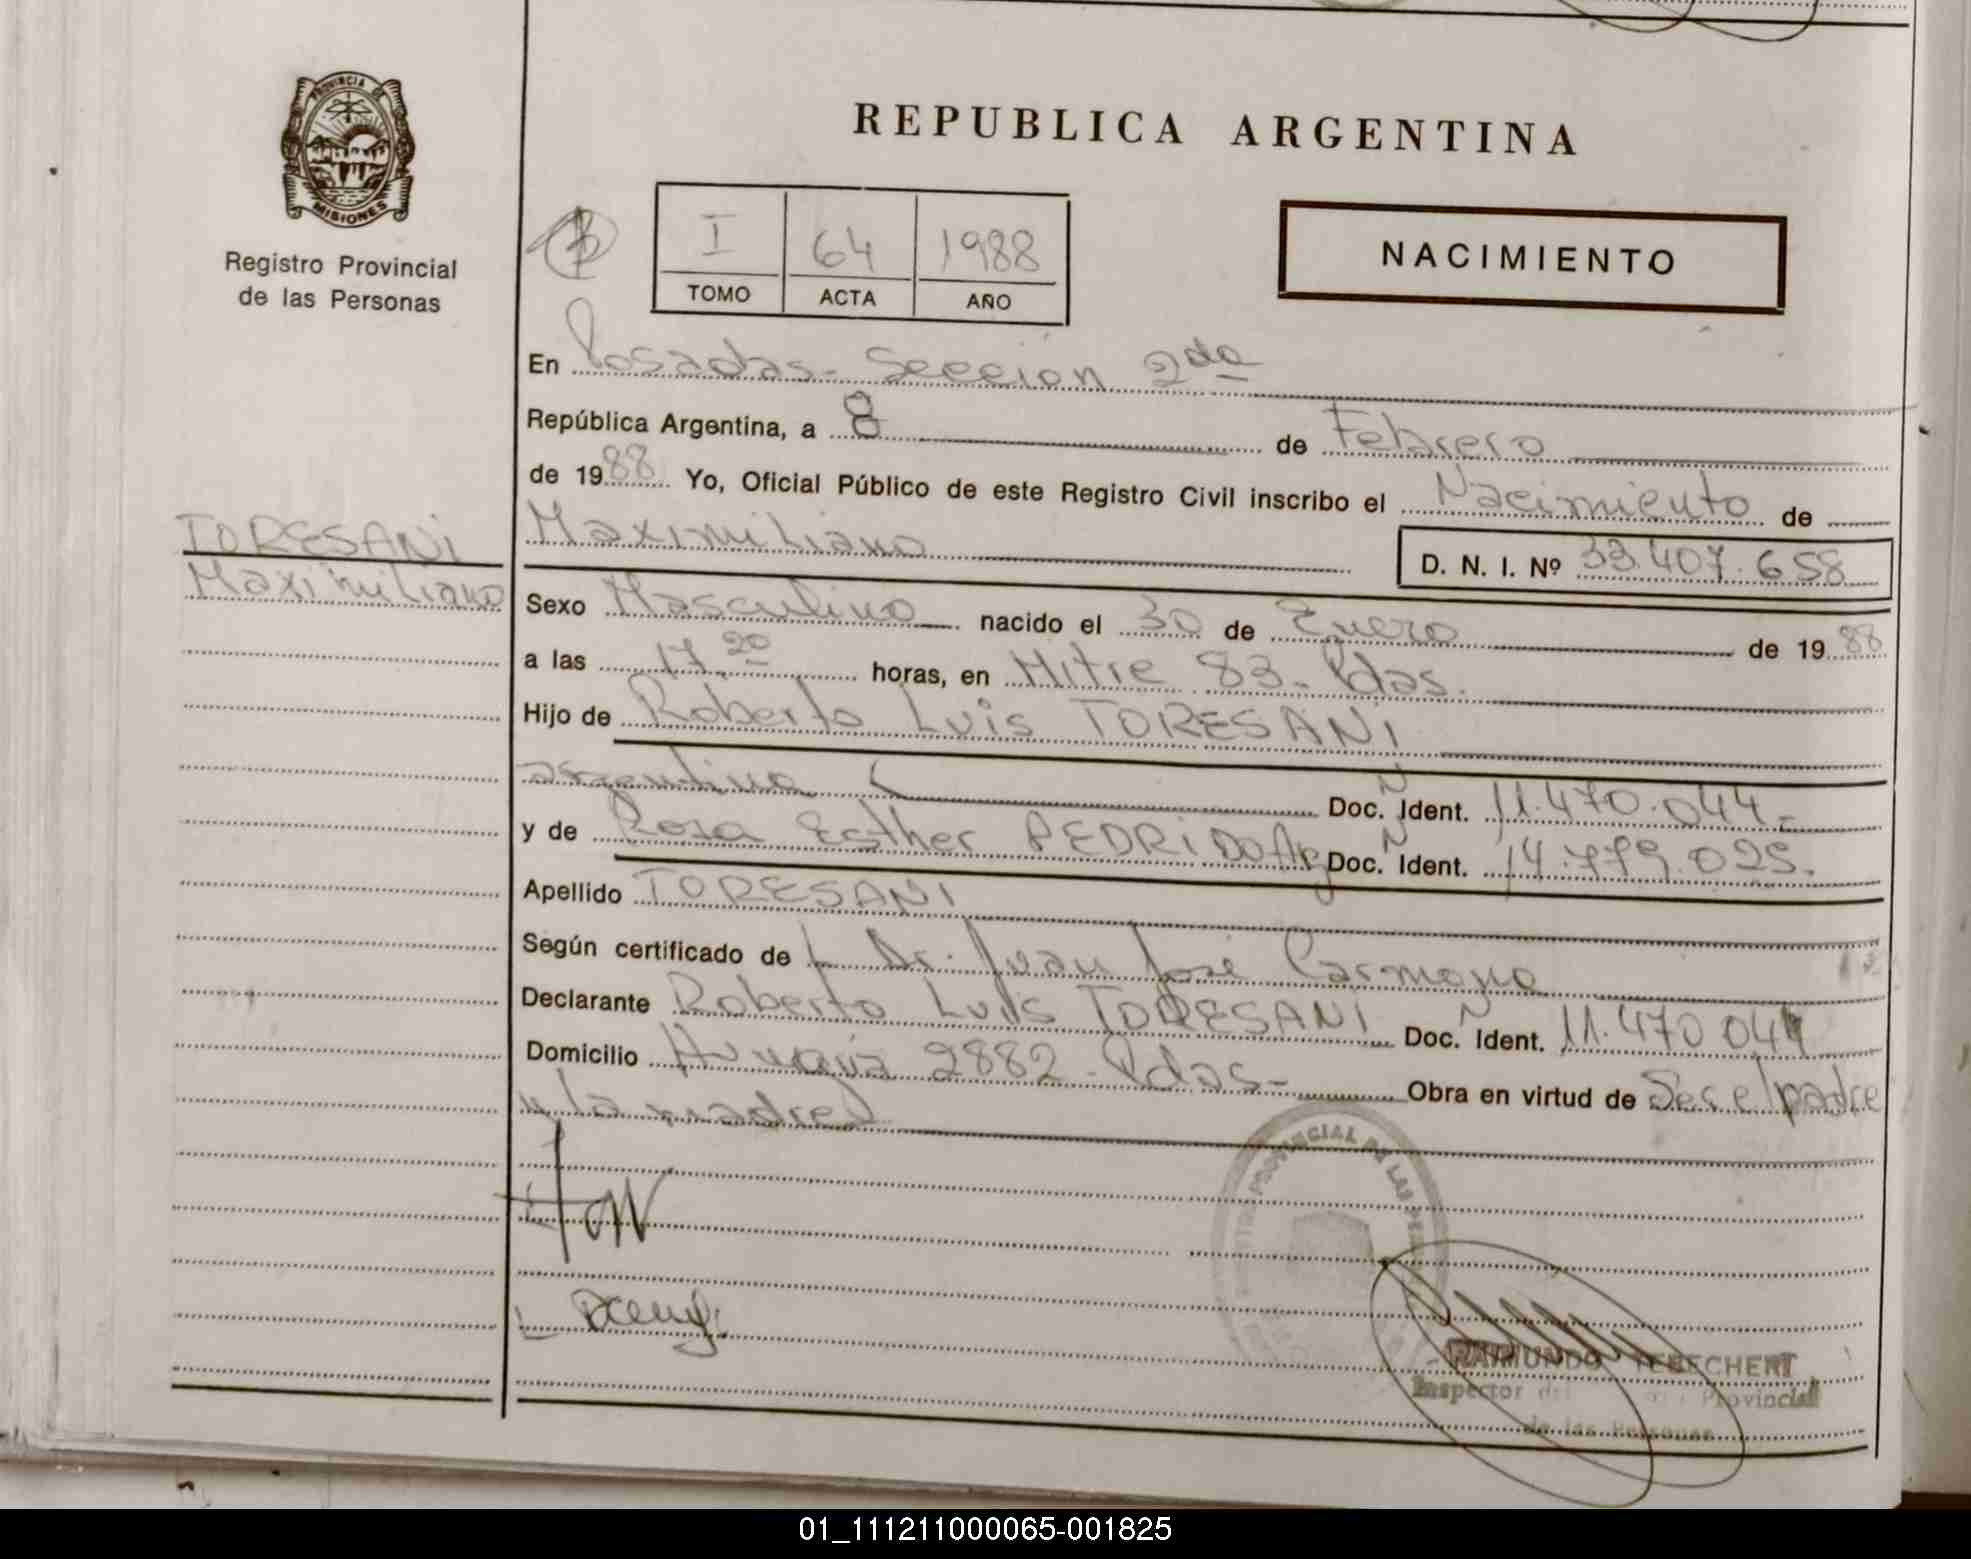 PROVINCIA DE
MISIONES
Registro Provincial
de las Personas
REPUBLICA ARGENTINA
I 64 1988
TOMO ACTA AÑO
NACIMIENTO
En Posadas - Sección 2da
República Argentina, a 8 de Febrero
de 1988 Yo, Oficial Público de este Registro Civil inscribo el Nacimiento de
TORESANI
Maximiliano
Maximiliano D. N. I. Nº 33.407.658
Sexo Masculino nacido el 30 de Enero de 1988
a las 17 20 horas, en Mitre 83 - Pdas.
Hijo de Roberto Luis TORESANI
argentino Doc. Ident. 11.470.044-
y de Rosa Esther PEDRIDO Arg Doc. Ident. 14.779.025.
Apellido TORESANI
Según certificado de L Dr. Juan José Carmona
Declarante Roberto Luis TORESANI Doc. Ident. 11.470 044
Domicilio 2882 - Pdas - Obra en virtud de Ser el padre
y la madre
PROVINCIAL DE LAS
RAIMUNDO
Inspector Provincial
de las Personas
01_111211000065-001825